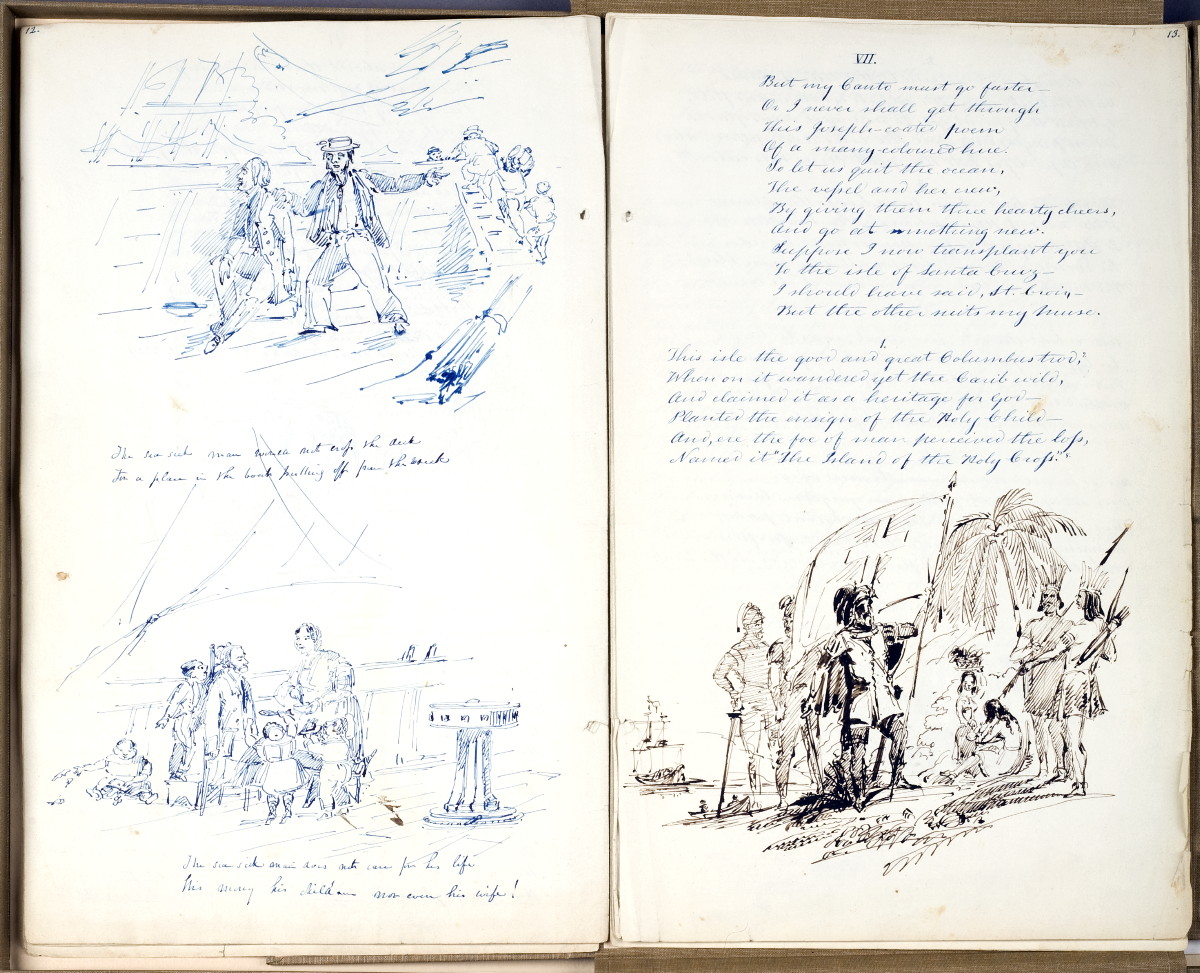 12.
The sea sick man would not cross the deck
For a place in the boat pulling off from the wreck
The sea sick man does not care for his life
His money his children nor even his wife!
13.
VII.
But my Canto must go faster—
Or I never shall get through
This Joseph-coated poem
Of a many-coloured hue.
So let us quit the ocean,
The vessel and her crew,
By giving them three hearty cheers,
And go at nothing new.
Suppose I now transplant you
To the isle of Santa Cruz—
I should have said, St. Croix,—
But the other suits my Muse.
1.
This isle the good and great Columbus trod,
When on it wandered yet the Carib wild,
And claimed it as a heritage for God—
Planted the ensign of the Holy Child—
And, ere the foe of man perceived the loss,
Named it "The Island of the Holy Cross."